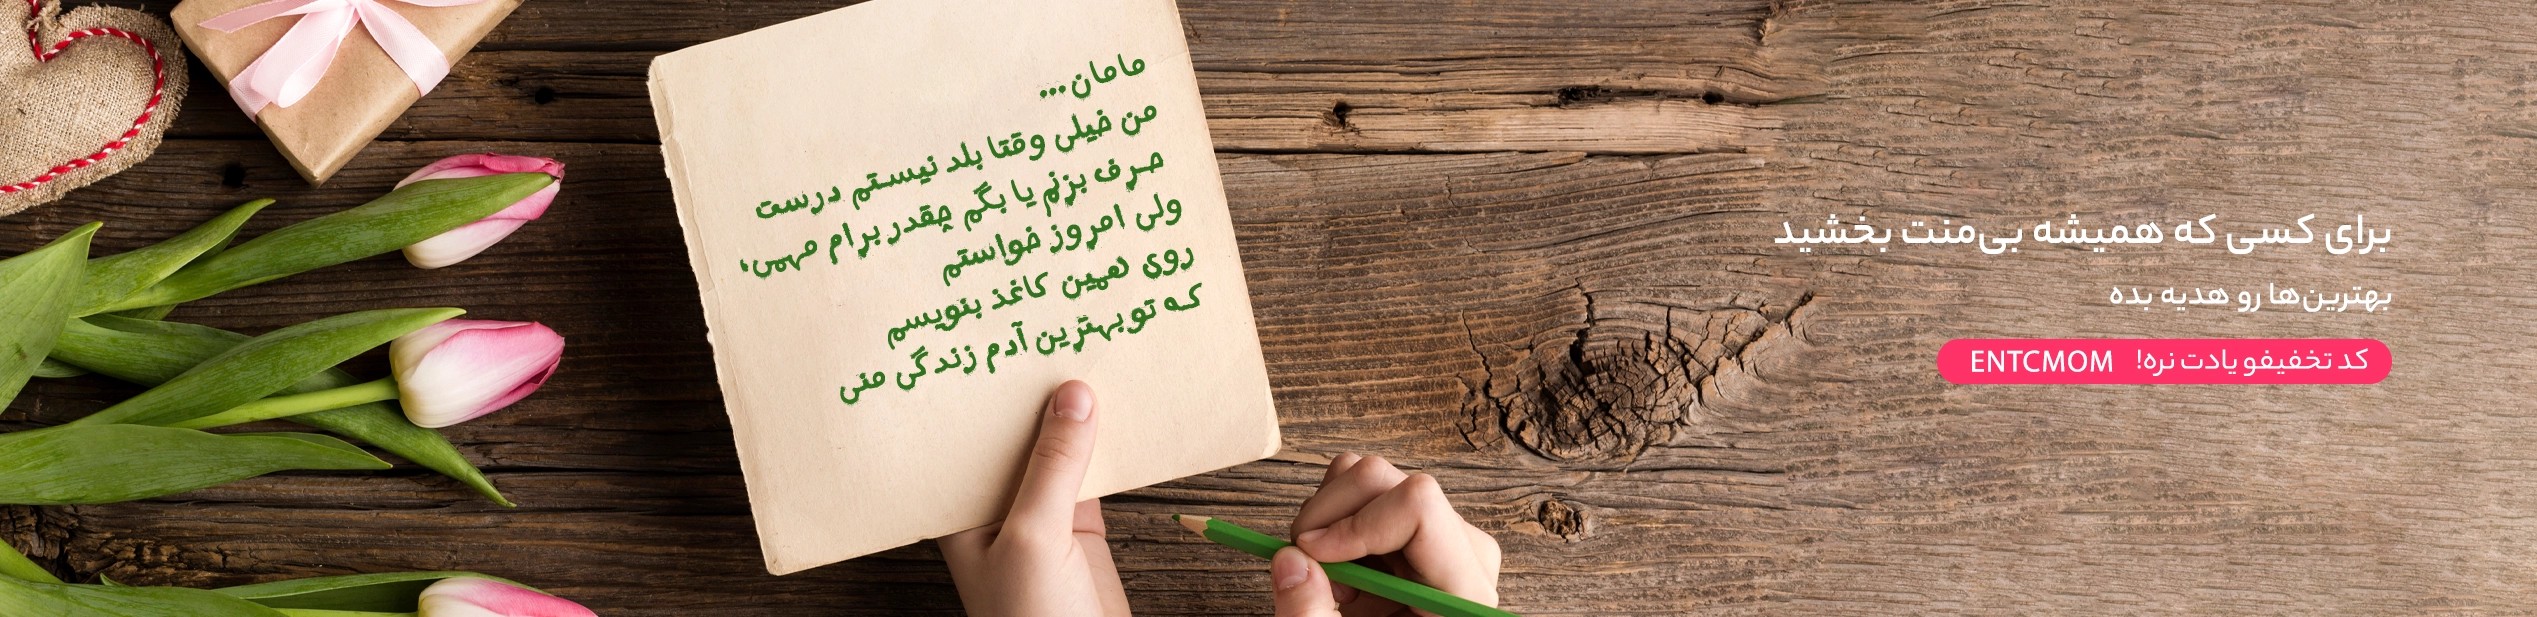 مامان...
من خیلی وقتا بلد نیستم درست
حرف بزنم یا بگم چقدر برام مهمی،
ولی امروز خواستم
روی همین کاغذ بنویسم
که تو بهترین آدم زندگی منی
برای کسی که همیشه بی‌منت بخشید
بهترین‌ها رو هدیه بده
کد تخفیفو یادت نره! ENTCMOM